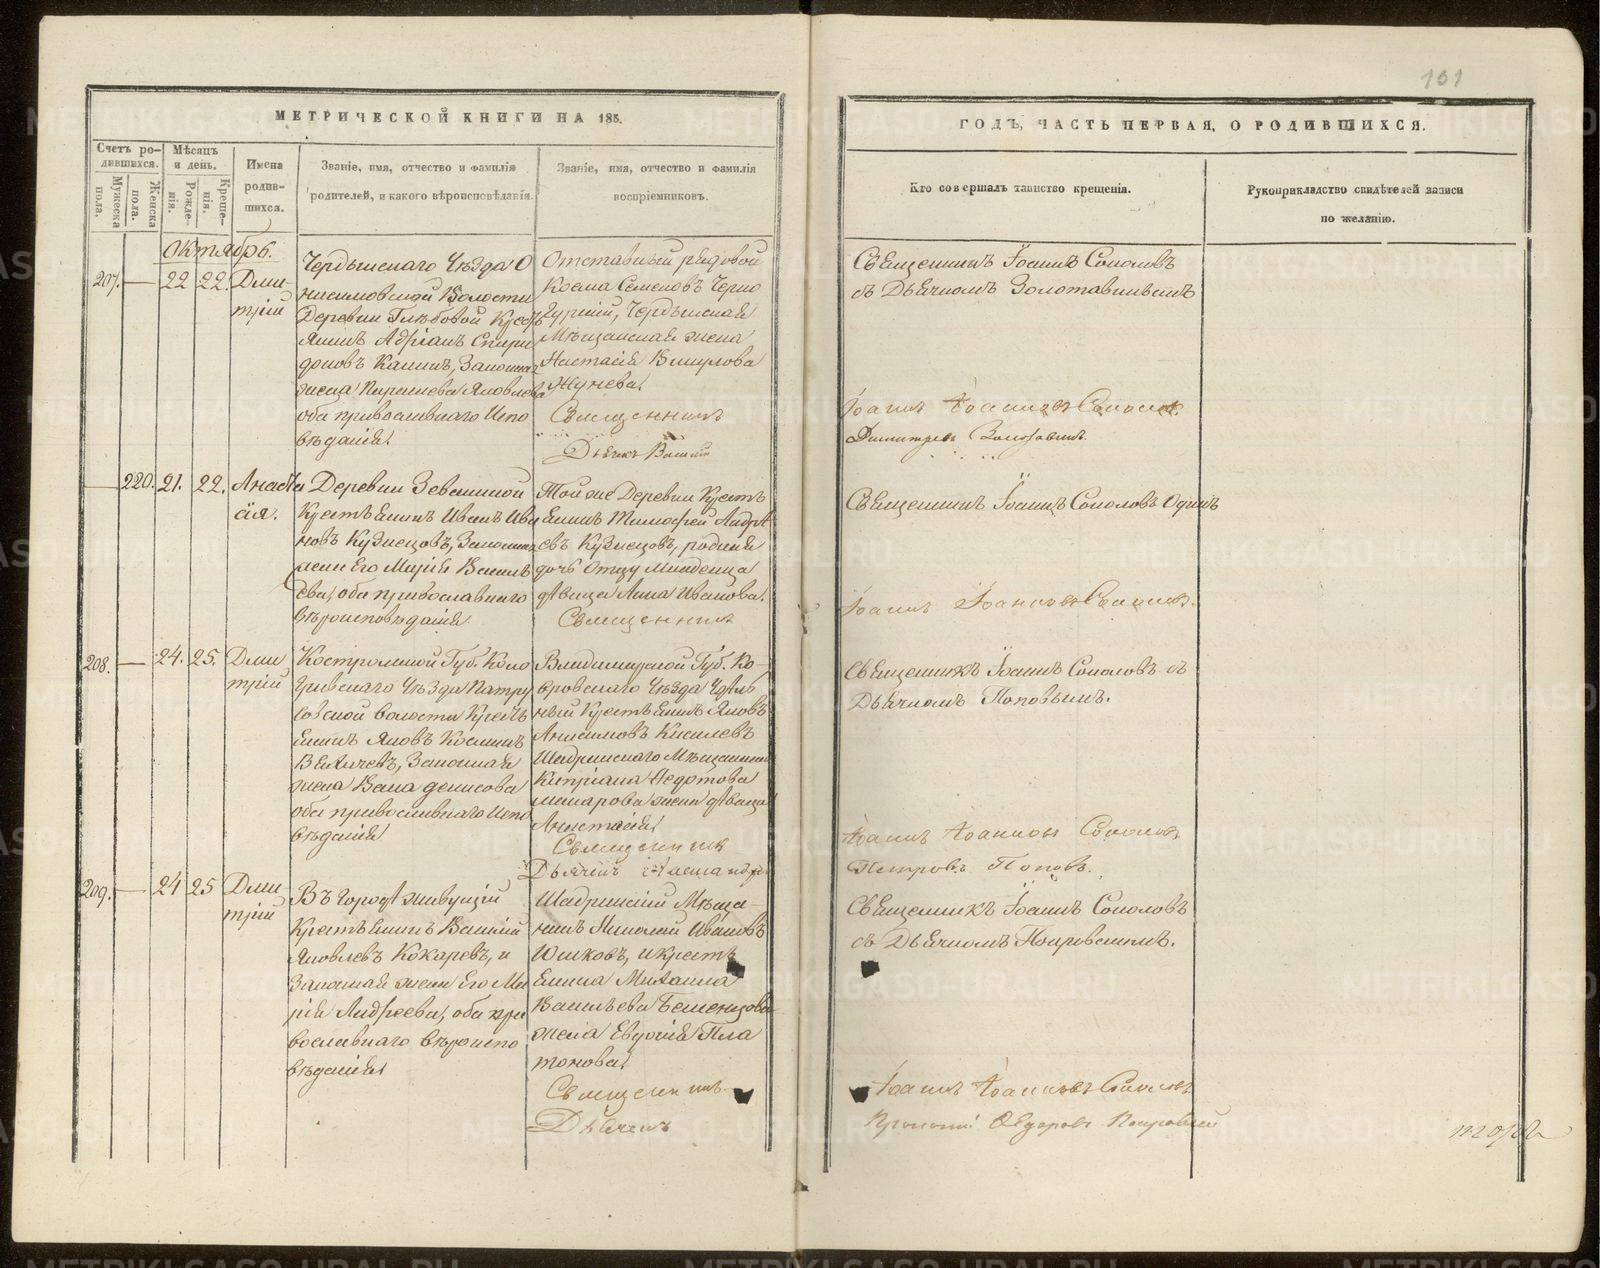 101
МЕТРИЧЕСКОЙ КНИГИ НА 185.
ГОДЪ, ЧАСТЬ ПЕРВАЯ, О РОДИВШИХСЯ.
Счетъ ро-
дившихся.
Мужеска
пола.
Женска
пола.
Мѣсяцъ
и день.
Рожде-
нія.
Креще-
нія.
Имена
родив-
шихся.
Званіе, имя, отчество и фамилія
родителей, и какого вѣроисповѣданія.
Званіе, имя, отчество и фамилія
воспріемниковъ.
Кто совершалъ таинство крещенія.
Рукоприкладство свидѣтелей записи
по желанію.
Октябрь.
207. — 22 22. Дми
трій
Чердынскаго Уѣзда О
нисимовской Волости
Деревни Глѣбовой Крест
янинъ Адріанъ Спири
доновъ Калинъ, Законная
жена
оба православнаго Испо
вѣданія
Отставный рядовой
Косма Семеновъ Черно
Чердынская
Мѣщанская жена
Настасія
Священникъ
Дьячекъ
Священникъ Іоаннъ Соколовъ
съ Дьячкомъ Золотавинымъ
Іоаннъ Іоанновъ Соколовъ
Димитрев
— 220. 21. 22. Анаста
сія.
Деревни Зевакиной
Крестьянинъ Иванъ Ива
новъ Кузнецовъ, Законная
жена Его Марія Василь
ева, оба православнаго
вѣроисповѣданія
Той же Деревни Кресть
янинъ Тимофей Андре
евъ Кузнецовъ, родная
дочь Отцу младенца
дѣвица Анна Иванова.
Священникъ
Священникъ Іоаннъ Соколовъ Одинъ
Іоаннъ Іоанновъ Соколовъ.
208. — 24. 25. Дми
трій
Костромской Губ. Коло
гривскаго Уѣзда Патру
совской волости Кресть
янинъ Яковъ Косминъ
Величевъ, Законная
жена денисова
оба православнаго Испо
вѣданія
Владимирской Губ. Ко-
вровскаго Уѣзда Удѣль
ный Крестьянинъ Яковъ
Анисимовъ Киселевъ
Шадринскаго Мѣщанина
Кипріана Федотова
дѣвица
Анастасія
Священникъ
Дьячекъ Александръ
Священникъ Іоаннъ Соколовъ съ
Дьячкомъ Поповымъ.
Іоаннъ Іоанновъ Соколовъ
Петровъ Поповъ.
209. — 24 25 Дми
трій
Въ городѣ живущій
Крестьянинъ Василій
Яковлевъ Кокаревъ, и
Законная жена Его Ма
рія Андреева, оба пра
вославнаго вѣроиспо
вѣданія
Шадринскій Мѣща-
нинъ Николай Ивановъ
Юшковъ, и крестъ
янина Михаила
Васильева
жена Евдокія Пла
тонова
Священникъ
Дьячекъ
Священникъ Іоаннъ Соколовъ
съ Дьячкомъ Покровскимъ.
Іоаннъ Іоанновъ Соколовъ
Прокопій Федоровъ Покровский